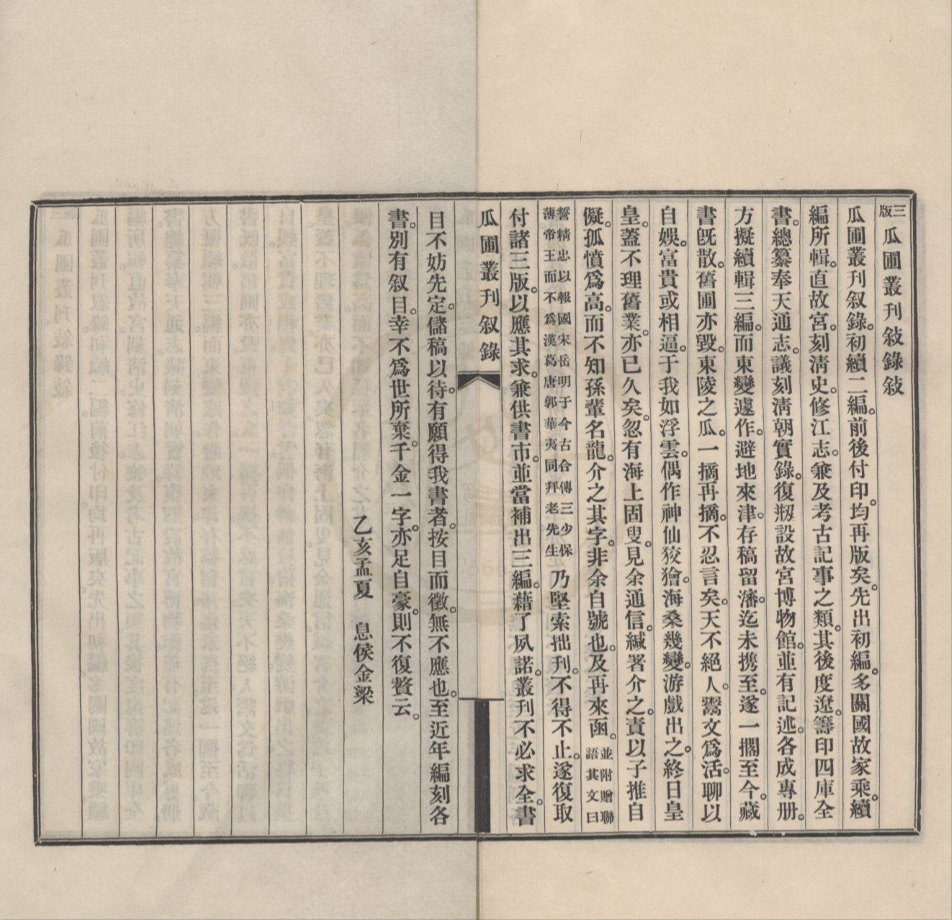 三版瓜圃叢刊敍錄敍
瓜圃叢刊叙錄。初續二編。前後付印。均再版矣。先出初編。多關國故家乘。續
編所輯。直故宮。刻清史。修江志。兼及考古記事之類。其後度遼。籌印四庫全
書。總纂奉天通志。議刻清朝實錄。復剏設故宮博物館。並有記述。各成專册。
方擬續輯三編。而東變遽作。避地來津。存稿留瀋。迄未携至。遂一擱至今。藏
書旣散。舊圃亦毀。東陵之瓜。一摘再摘。不忍言矣。天不絕人。鬻文爲活。聊以
自娛。富貴或相逼。于我如浮雲。偶作神仙狡獪。海桑幾變。游戲出之。終日皇
皇。蓋不理舊業。亦已久矣。忽有海上固叟。見余通信。緘署介之。責以子推自
儗。孤憤爲高。而不知孫輩名龍。介之其字。非余自號也。及再來函。並附贈聯語其文曰
誓精忠以報國宋岳明于今古合傳三少保薄帝王而不為漢葛唐郭華夷同拜老先生乃堅索拙刊。不得不止。遂復取
付諸三版。以應其求。兼供書市。並當補出三編。藉了夙諾。叢刊不必求全。書
瓜圃叢刊叙錄
目不妨先定。儲稿以待。有願得我書者。按目而徵。無不應也。至近年編刻各
書。別有叙目。幸不爲世所棄。千金一字。亦足自豪。則不復贅云。
乙亥孟夏 息侯金梁